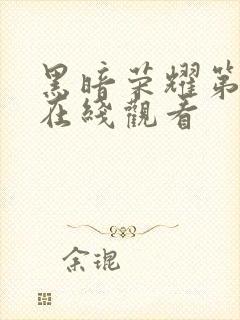 黑暗荣耀第
在綫觀看
余琨